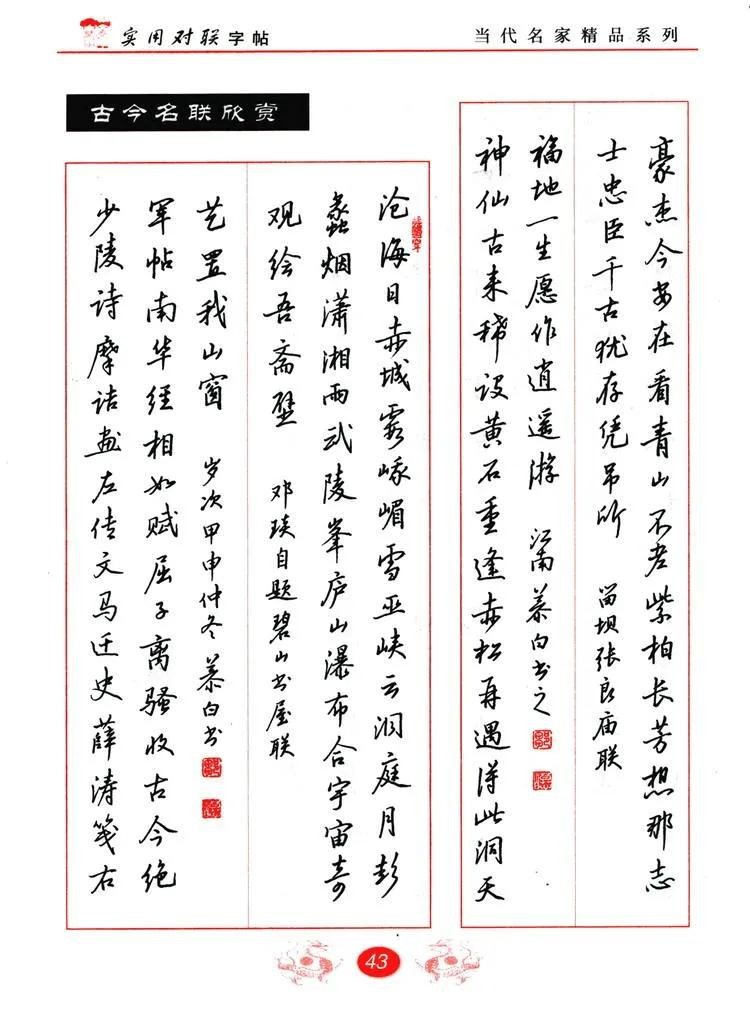 实用对联字帖
当代名家精品系列
古今名联欣赏
豪杰今安在看青山不老紫柏长芳想那志
士忠臣千古犹存凭吊所 留坝张良庙联
神仙古来稀设黄石重逢赤松再遇得此洞天
福地一生愿作逍遥游 江南慕白书之
沧海日赤城霞峨嵋雪巫峡云洞庭月彭
蠡烟潇湘雨武陵峰庐山瀑布合宇宙奇
观绘吾斋壁 邓琰自题碧山书屋联
少陵诗摩诘画左传文马迁史薛涛笺右
军帖南华经相如赋屈子离骚收古今绝
艺置我山窗 岁次甲申仲冬慕白书
43